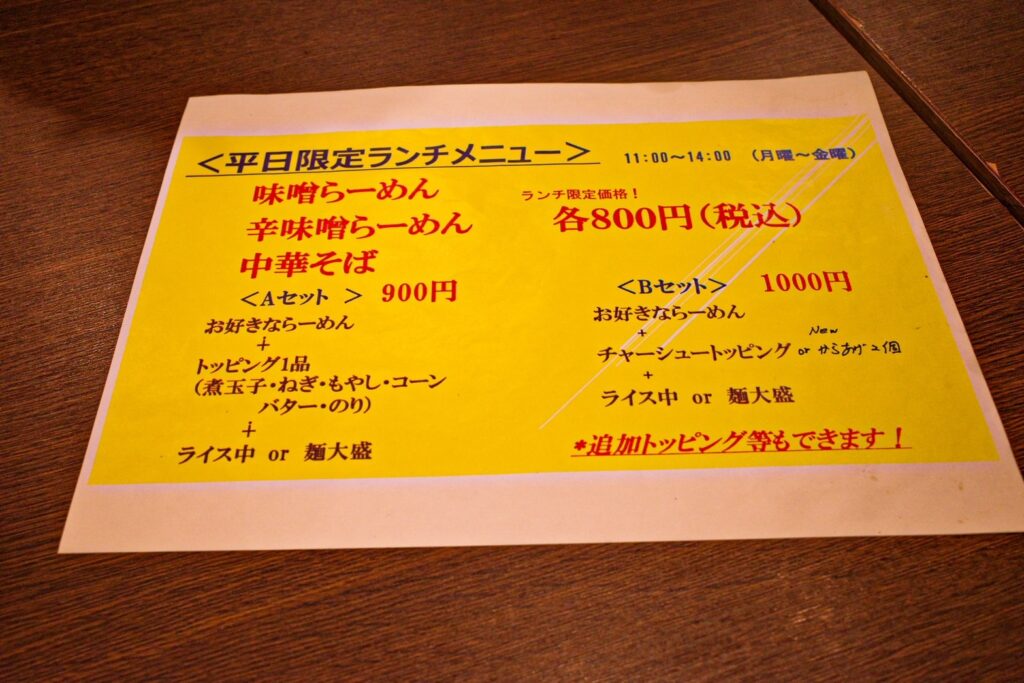 ＜平日限定ランチメニュー＞ 11:00～14:00 （月曜～金曜）
味噌らーめん
辛味噌らーめん
中華そば
ランチ限定価格！
各800円（税込）
＜Aセット ＞ 900円
お好きならーめん
+
トッピング1品
（煮玉子・ねぎ・もやし・コーン
バター・のり）
+
ライス中 or 麺大盛
＜Bセット＞ 1000円
お好きならーめん
+
New
チャーシュートッピング or からあげ2個
+
ライス中 or 麺大盛
*追加トッピング等もできます！